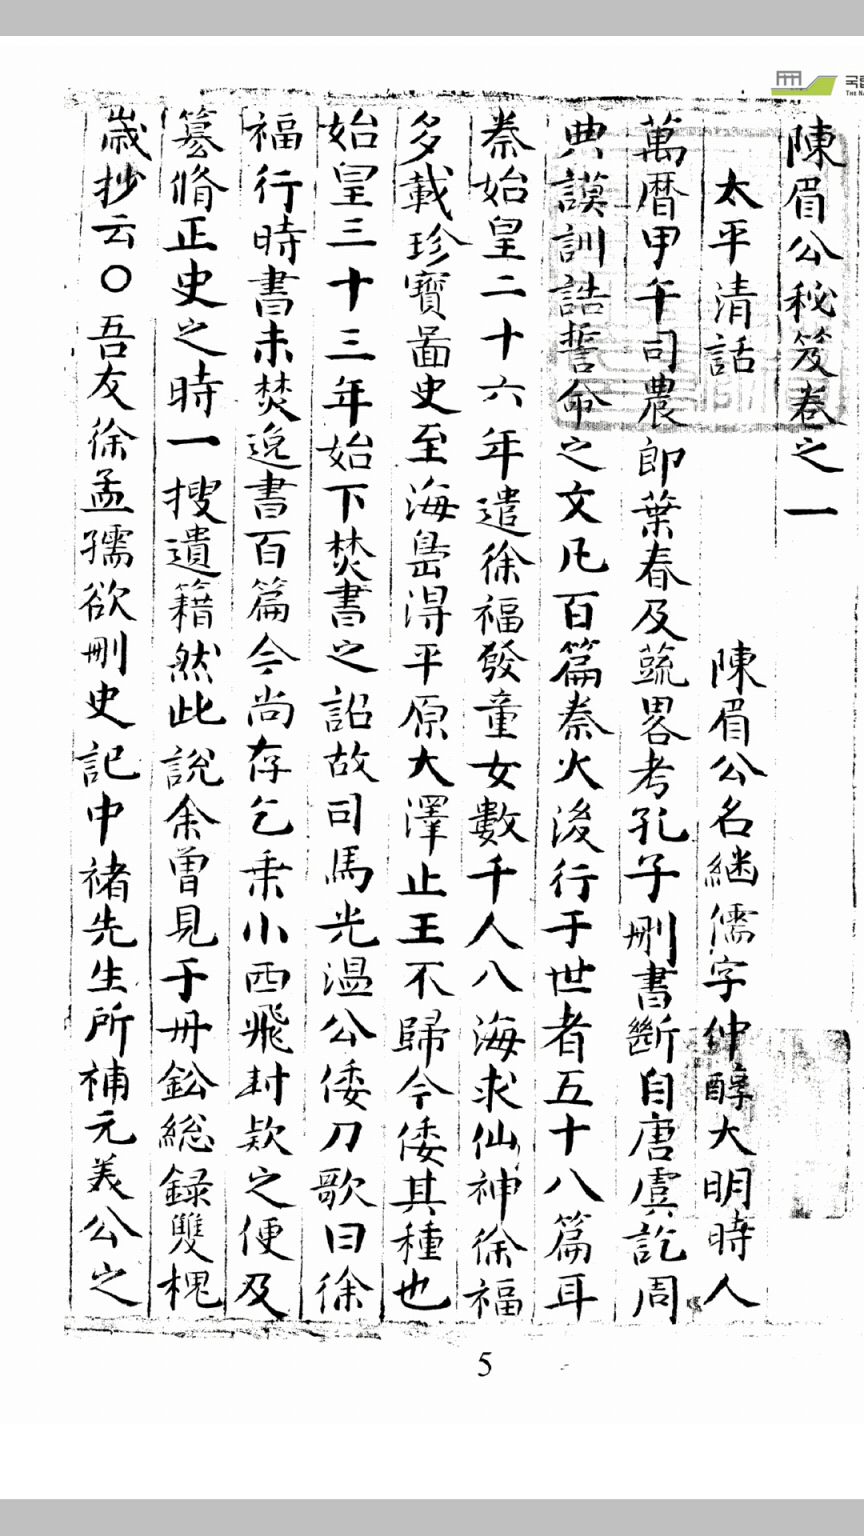 陳眉公秘笈卷之一
太平清話 陳眉公名継儒字仲醇大明時人
萬曆甲午司農郎葉春及䟽畧考孔子刪書斷自唐虞訖周
典謨訓誥誓命之文凡百篇秦火後行于世者五十八篇耳
秦始皇二十六年遣徐福發童女數千人入海求仙神徐福
多載珍寶啚史至海島淂平原大澤止王不歸今倭其種也
始皇三十三年始下焚書之詔故司馬光温公倭刀歌曰徐
福行時書未焚逸書百篇今尚存乞乗小西飛封欵之便及
纂脩正史之時一搜遺籍然此說余曽見于冊鈆総録雙槐
歲抄云○吾友徐孟孺欲刪史記中褚先生所補元羙公之
国
THE NA
5